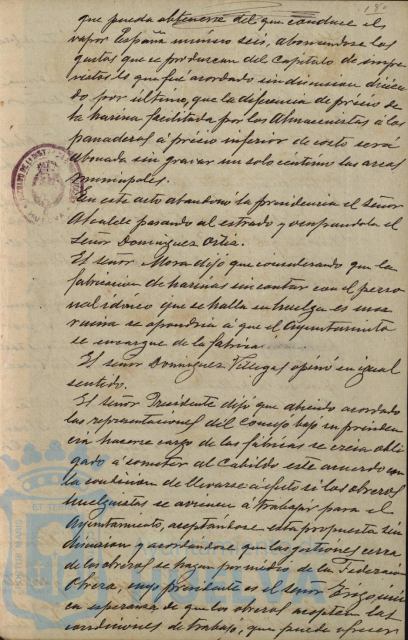 que pueda obtenerse del que conduce el
vapor España número seis, abonandose los
gastos que se produzcan del Capítulo de impre
vistos lo que fué acordado sin discusion dicien
do por último, que la diferencia de precio de
la harina facilitada por los Almacenistas á los
panaderos á precio inferior de costo será
abonada sin gravar un solo centimo las arcas
municipales.
En este acto abandonó la presidencia el señor
Alcalde pasando al estrado y ocupandola el
Señor Dominguez Ortiz.
El señor Mora dijo que considerando que la
fabricacion de harinas sin contar con el perso
nal idóneo que se halla en huelga es una
ruina se opondria á que el Ayuntamiento
se encargue de la fabrica.
El señor Dominguez Villegas opinó en igual
sentido.
El señor Presidente dijo que habiendo acordado
las representaciones del Consejo bajo su presiden
cia hacerse cargo de las fábricas se creia obli
gado á someter al Cabildo este acuerdo con
la condicion de llevarse á efecto si los obreros
huelguistas se avienen á trabajar para el
Ayuntamiento, aceptandose esta propuesta sin
discusion y acordandose que las gestiones cerca
de los obreros se hagan por medio de la Federacion
Obrera, cuyo presidente es el señor
en esperanza de que los obreros acepten las
condiciones de trabajo, que puede ofrecer